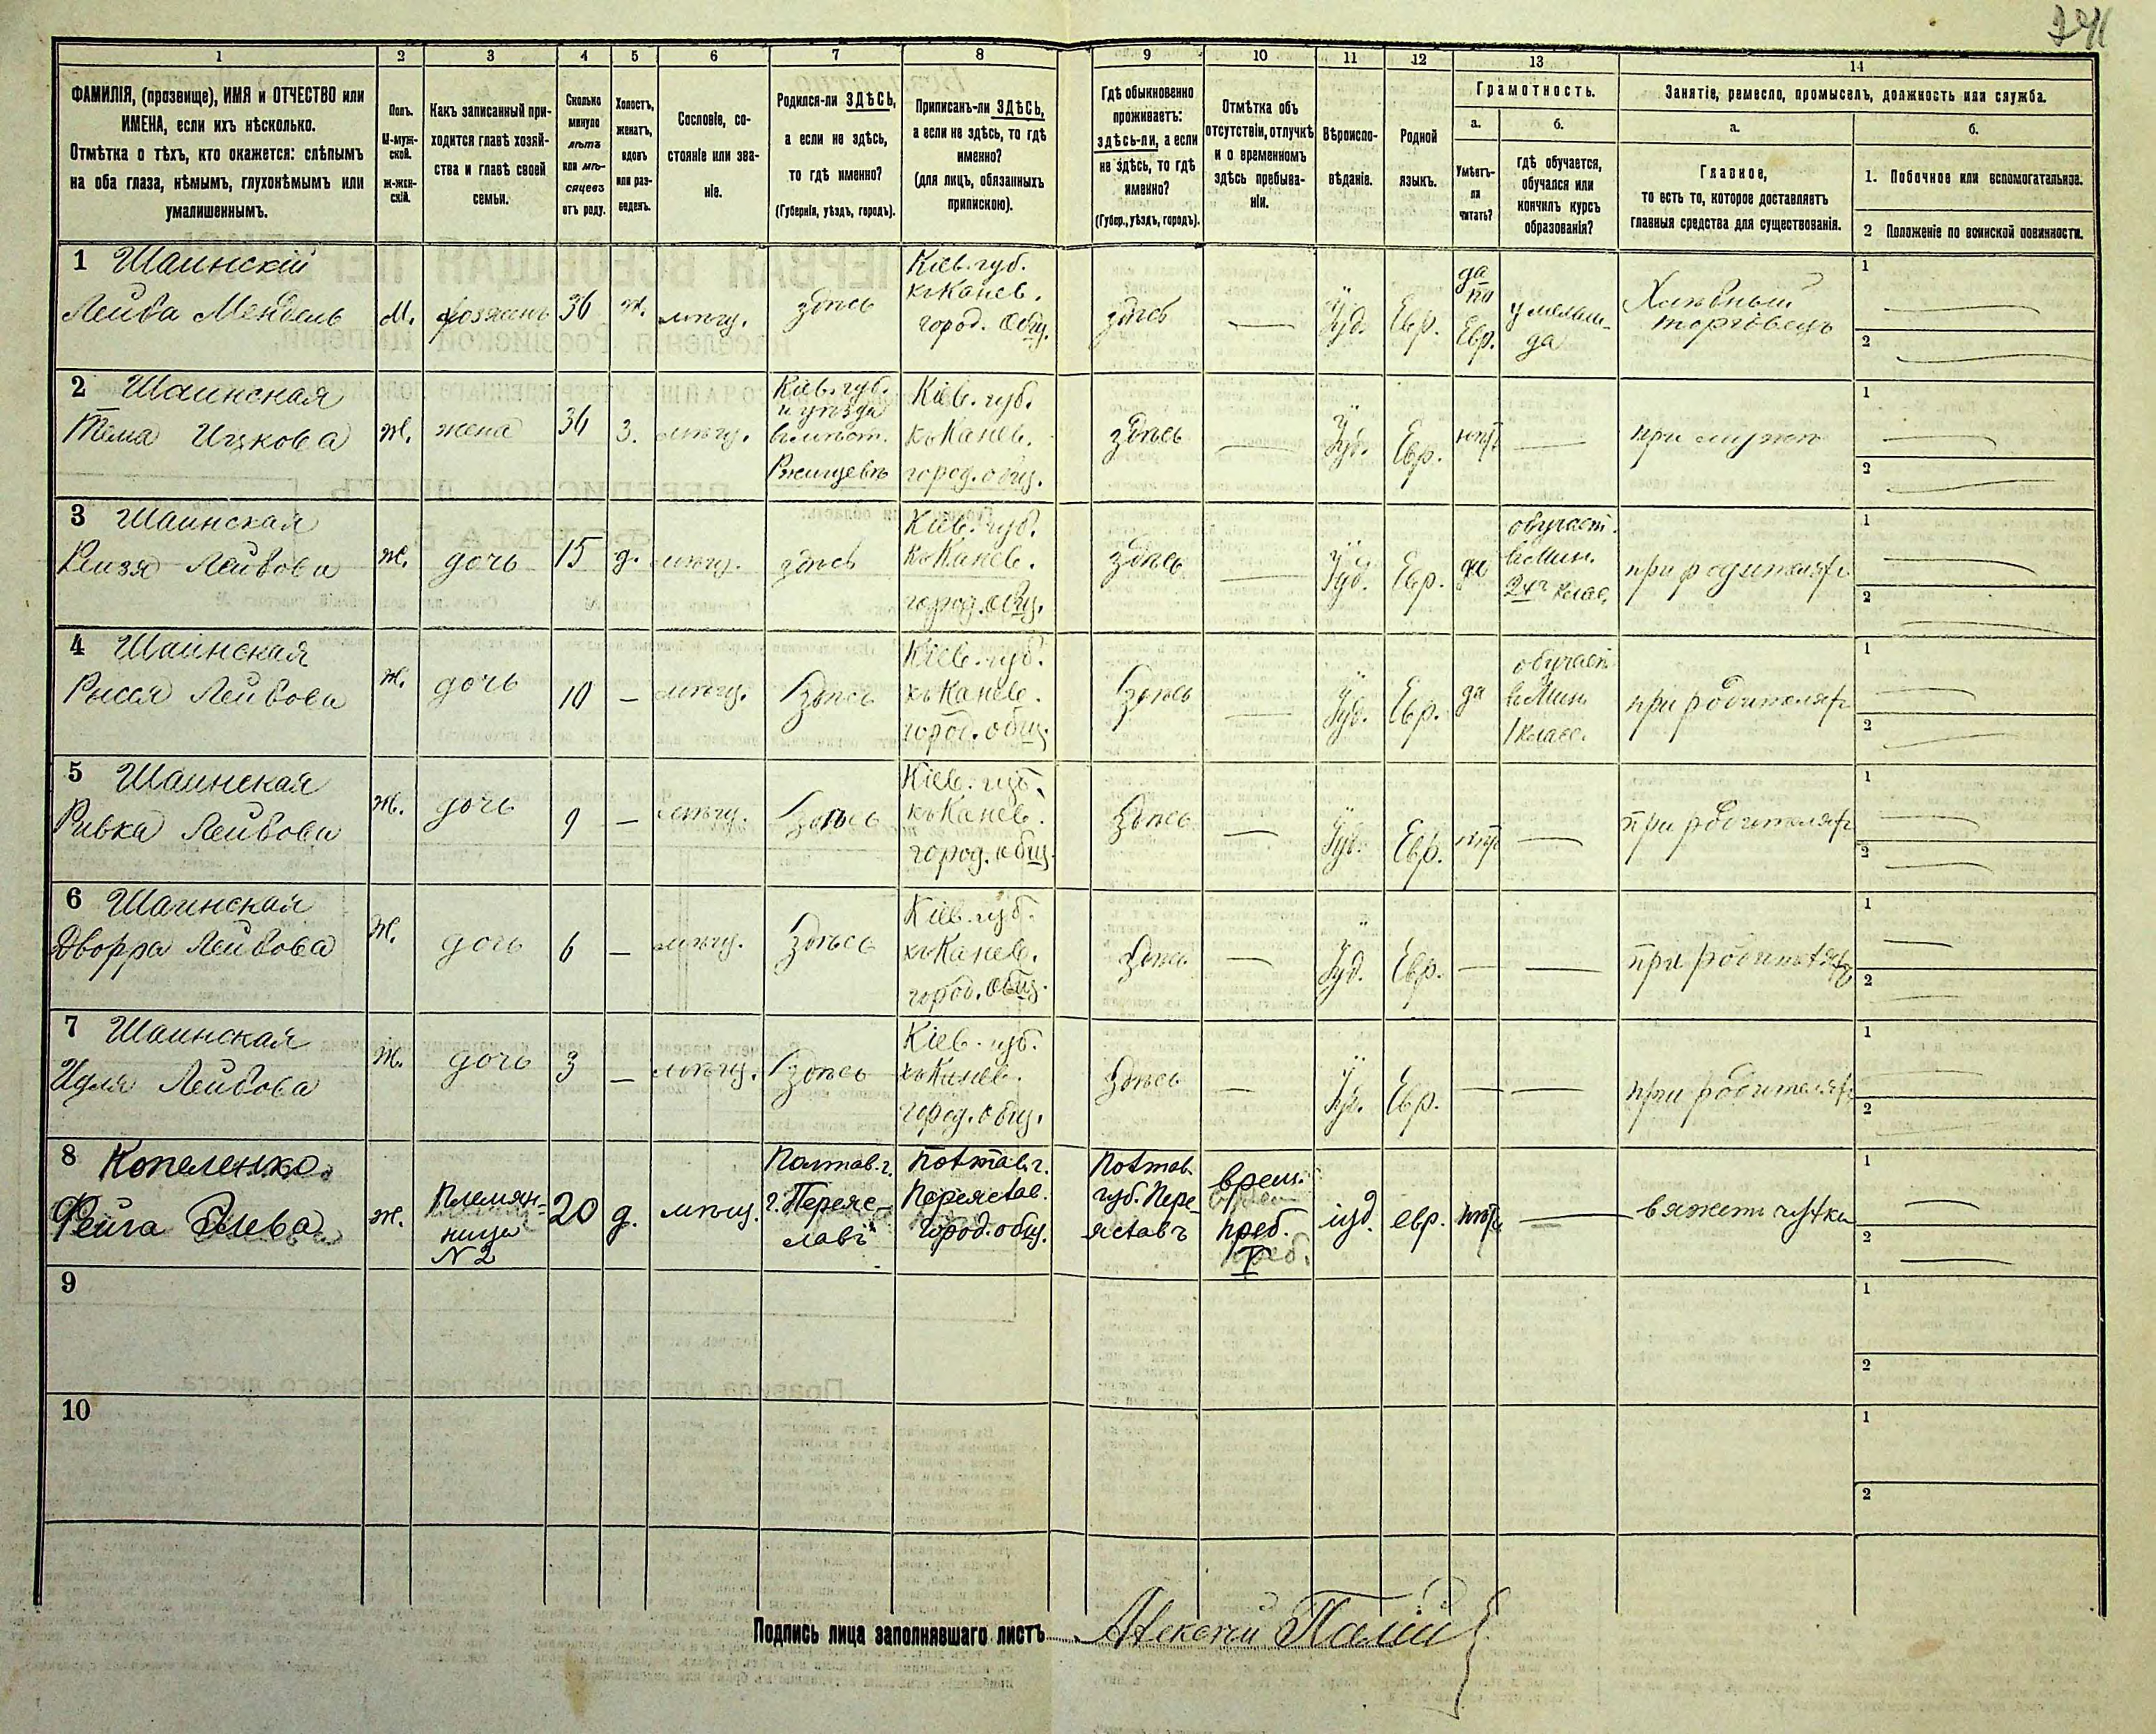 741
1 2 3 4 5 6 7 8 9 10 11 12 13 14
ФАМИЛІЯ, (прозвище), ИМЯ и ОТЧЕСТВО или
ИМЕНА, если ихъ нѣсколько.
Отмѣтка о тѣхъ, кто окажется: слѣпымъ
на оба глаза, нѣмымъ, глухонѣмымъ или
умалишеннымъ.
Полъ.
М-муж-
ской.
ж-жен-
скій.
Какъ записанный при-
ходится главѣ хозяй-
ства и главѣ своей
семьи.
Сколько
минуло
лѣтъ
или мѣ-
сяцевъ
отъ роду.
Холостъ,
женатъ,
вдовъ
или раз-
веденъ.
Сословіе, со-
стояніе или зва-
ніе.
Родился-ли ЗДѢСЬ,
а если не здѣсь,
то гдѣ именно?
(Губернія, уѣздъ, городъ).
Приписанъ-ли ЗДѢСЬ,
а если не здѣсь, то гдѣ
именно?
(для лицъ, обязанныхъ
припискою).
Гдѣ обыкновенно
проживаетъ:
здѣсь-ли, а если
не здѣсь, то гдѣ
именно?
(Губер., уѣздъ, городъ).
Отмѣтка объ
отсутствіи, отлучкѣ
и о временномъ
здѣсь пребыва-
ніи.
Вѣроиспо-
вѣданіе.
Родной
языкъ.
Грамотность.
а.
Умѣетъ-
ли
читать?
б.
гдѣ обучается,
обучался или
кончилъ курсъ
образованія?
Занятіе, ремесло, промыселъ, должность или служба.
а.
Главное,
то есть то, которое доставляетъ
главныя средства для существованія.
б.
1. Побочное или вспомогательное.
2 Положеніе по воинской повинности.
1 Шаинскій
Лейба Мендель
М.
хозяинъ
36
ж.
мѣщ.
здѣсь
Кіев. губ.
къ Канев.
город. Общ.
здѣсь
—
Іуд.
Евр.
да
по
Евр.
у мелам-
да
Хлѣбный
торговецъ
1 —
2 —
2 Шаинская
Тема Ицкова
ж.
жена
34
з.
мѣщ.
Кіев. губ.
и уѣзда
въ мѣст.
Ржищевѣ
Кіев. губ.
къ Канев.
город. общ.
здѣсь
—
Іуд.
Евр.
нѣтъ
—
при мужѣ
1 —
2 —
3 Шаинская
Лейбова
ж.
дочь
15
д.
мѣщ.
здѣсь
Кіев. губ.
къ Канев.
город. общ.
здѣсь
—
Іуд.
Евр.
да
обучает.
въ Мин.
2хъ клас.
при родителяхъ
1 —
2 —
4 Шаинская
Рысся Лейбова
ж.
дочь
10
—
мѣщ.
Здѣсь
Кіев. губ.
къ Канев.
город. общ.
Здѣсь
—
Іуд.
Евр.
да
обучает.
въ Мин.
1 класс.
при родителяхъ
1 —
2 —
5 Шаинская
Ривка Лейбова
ж.
дочь
9
—
мѣщ.
Здѣсь
Кіев. губ.
къ Канев.
город. общ.
Здѣсь
—
Іуд.
Евр.
нѣтъ
—
при родителяхъ
1 —
2 —
6 Шаинская
Двойра Лейбова
ж.
дочь
6
—
мѣщ.
Здѣсь
Кіев. губ.
къ Канев.
город. Общ.
Здѣсь
—
Іуд.
Евр.
—
—
при родителяхъ
1 —
2 —
7 Шаинская
Лейбова
ж.
дочь
3
—
мѣщ.
Здѣсь
Кіев. губ.
къ Канев.
город. общ.
Здѣсь
—
Іуд.
Евр.
—
—
при родителяхъ
1
2
8 Копеленко
Фейга
ж.
Племян-
ница
N 2
20
д.
мѣщ.
Полтав. г.
г. Переяс-
лавъ
Полтав. г.
Переяслав.
город. общ.
Полтав.
губ. Пере-
яславъ
врем.
преб.
іуд.
евр.
нѣтъ
—
вяжетъ чулки
1 —
2 —
9
1
2
10
1
2
Подпись лица заполнявшаго листъ Алексѣй Палій